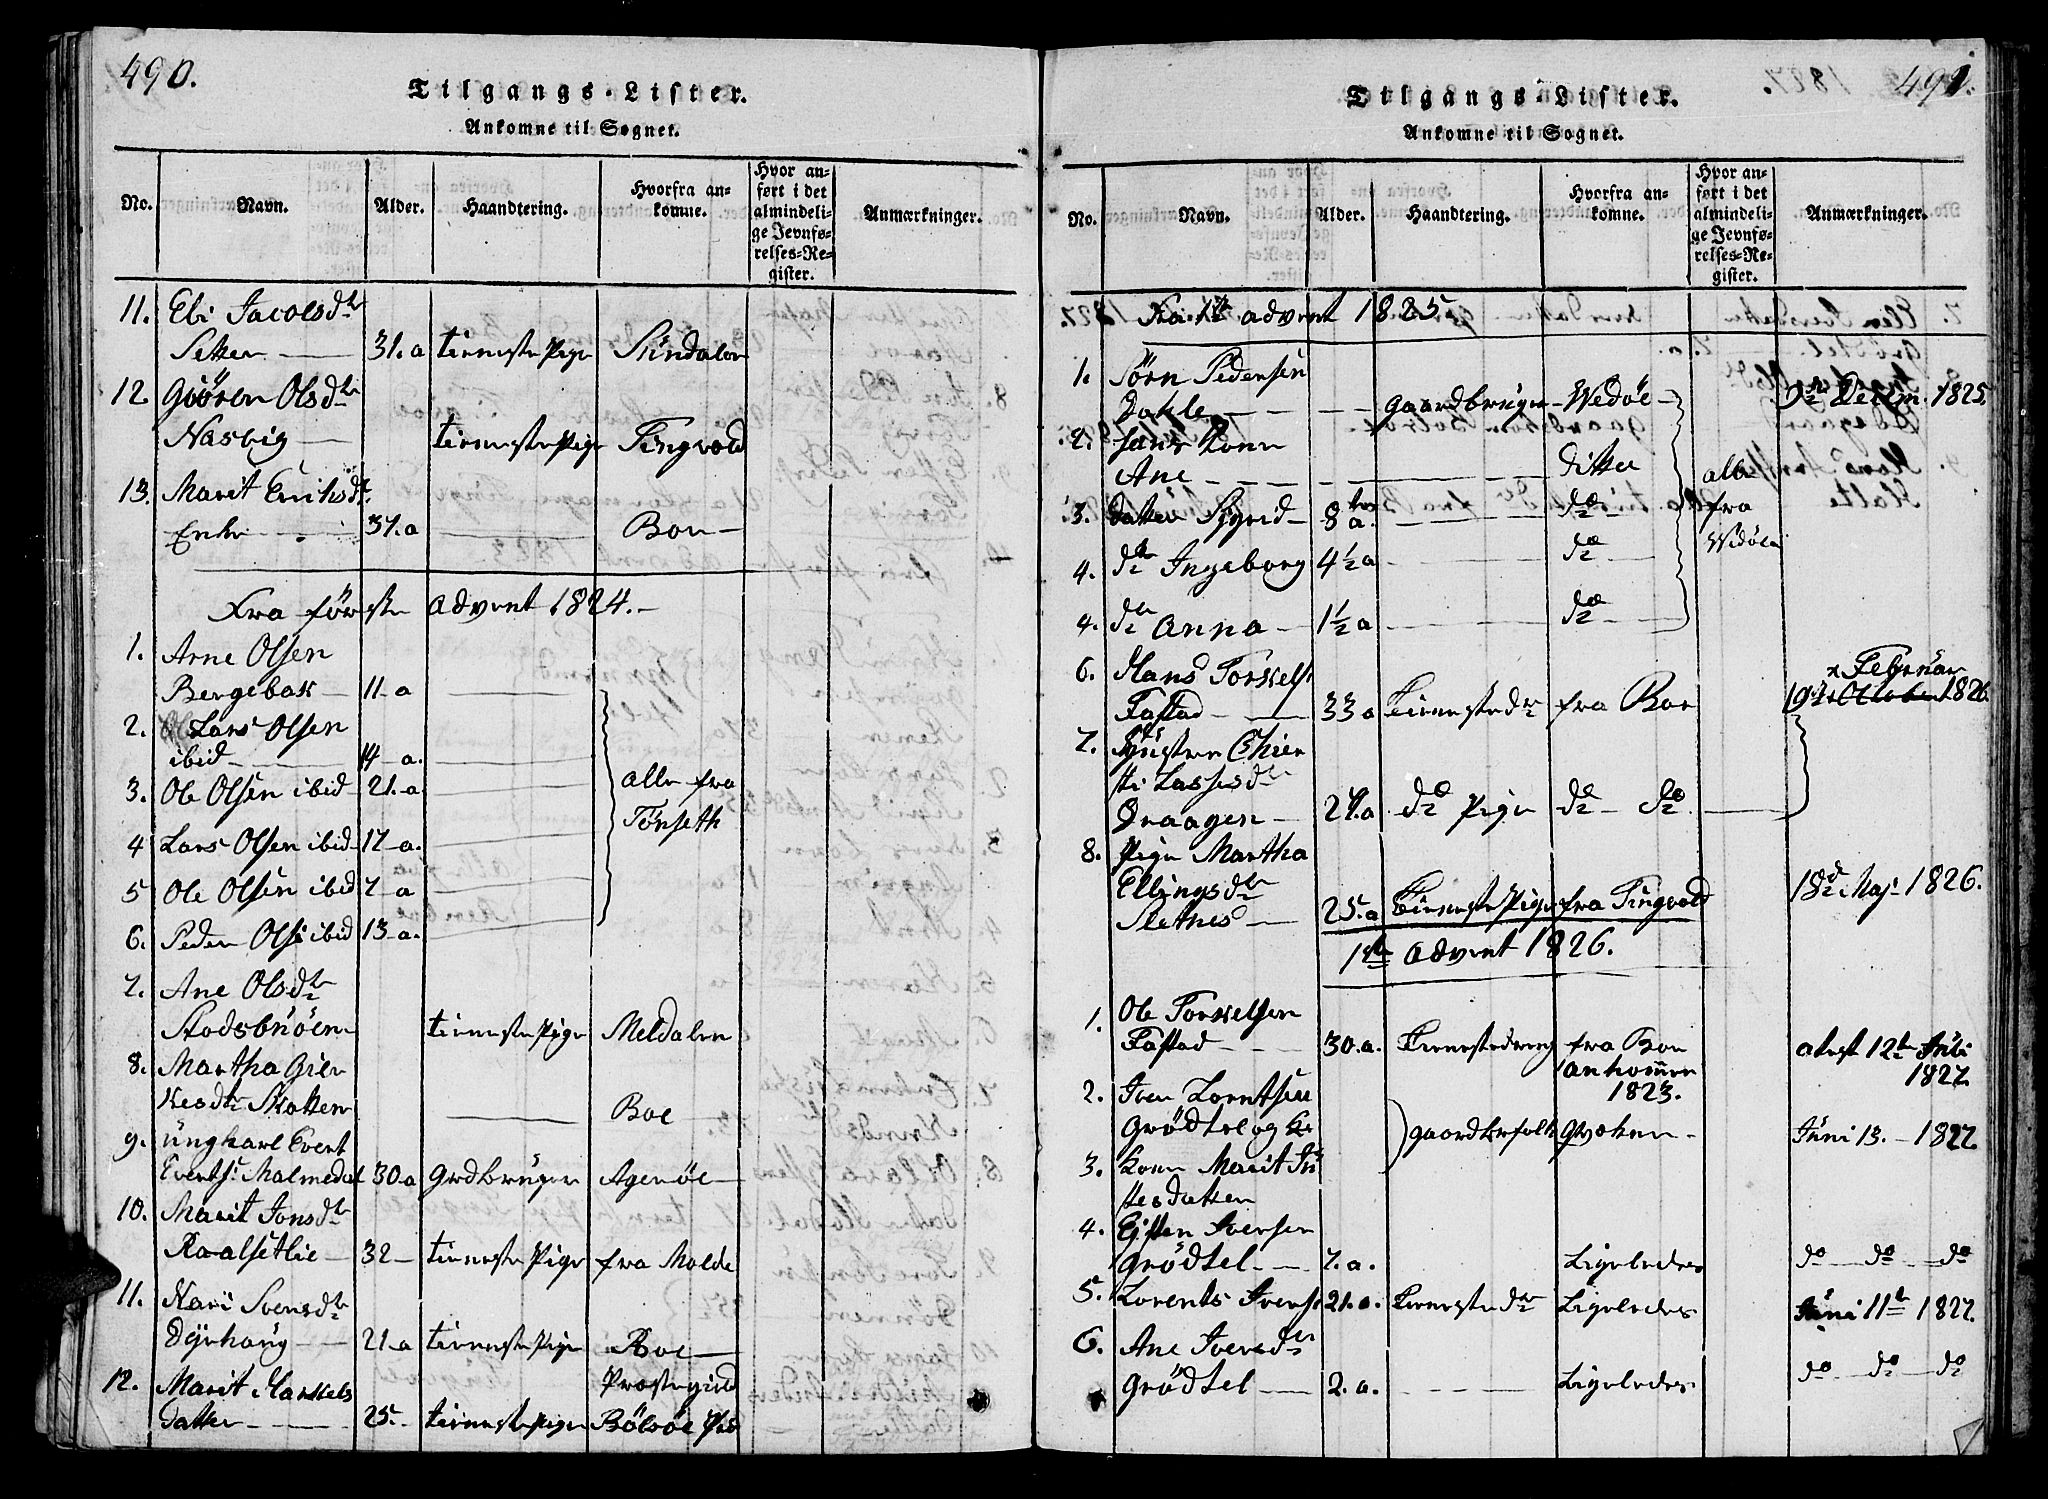 490.
Tilgangs-Lister.
Ankomne til Sognet.
No. Navn. Alder. Haandtering. Hvorfra ankomne. Hvor anført i det almindelige Jevnførelses-Register. Anmærkninger.
11. Eli Jacobsdtr
Setter 31. a tieneste Pige Sundalen
12. Giören Olsdtr
Nasvig tieneste Pige Tingvold
13. Marit Eriksdtr.
Enke 37. a Boe
Fra förste Advent 1824.
1. Arne Olsen
Bergebak 11 a
2. Lars Olsen
ibid 14 a.
3. Ole Olsen ibid 21. a alle fra
Tönseth
4 Lars Olsen ibid 17 a.
5 Ole Olsen ibid 7 a
6. Peder Olse ibid 13 a.
7. Ane Olsdtr
Stodsbrüen tieneste Pige Meldalen
8. Martha Gier
Kesdtr Skotten Boe
9. ungkarl Evert
Everts: Malmedal 30 a grdbruger Agerøe
10. Marit Jonsdtr
Raalsetlie 32 tieneste Pige fra Molde
11. Kari Svensdtr
Dyrhaug 21 a tieneste Pige Boe
Prestegield
12. Marit Karkels
datter 25 tieneste Pige Bölsöe
491.
Tilgangs-Lister.
Ankomne til Sognet.
No. Navn. Alder. Haandtering. Hvorfra ankomne. Hvor anført i det almindelige Jevnførelses-Register. Anmærkninger.
Fra 1ste advent 1825.
1. Jörn Pedersen
Dahle gaardbruger Wedöe 1825.
2. hans Kone
Ane ditto alle
3. datter Sigrid 8 a. do fra
4. do Ingeborg 4½ a do Wedöe
4. do Anna 1½ a do
6. Hans Torkels Februar
Fastad 33 a Tienestedr fra Boe 19 October 1826
7. Chier
sti Lassesdr
Draagen 24. a do Pige do do
8. Pige Martha
Ellingsdtr 18de Maj 1826.
Sletnes 25. a Tieneste Pige fra Tingvold
1ste advent 1826.
1. Ole Torkelsen
Fastad 30. a. Tienestedreng fra Boe atest 12te Juli
ankommen 1827
1823.
2. Iver Lorntsen
Grödtel og gaardbrfolk Juni 13. 1827.
3. Kone Marit
tesdatter
4. Eisten Iversen
Grödtel 7. a. Ligeledes do do do
5. Lorents Ivers 21. a. Tienestedr Ligeledes Juni 11te 1827.
6. Ane Iversdtr
Grödtel 2. a. Ligeledes do do do